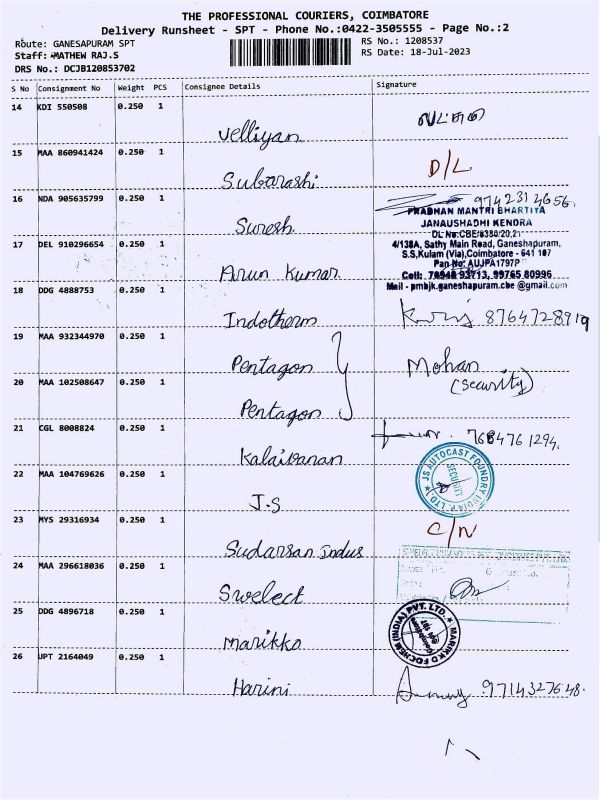 THE PROFESSIONAL COURIERS, COIMBATORE
Delivery Runsheet - SPT - Phone No.:0422-3505555 - Page No.:2
Route: GANESAPURAM SPT
RS No.: 1208537
Staff: MATHEW RAJ.S
RS Date: 18-Jul-2023
DRS No.: DCJB120853702
S No Consignment No Weight PCS Consignee Details Signature
14 KDI 550508 0.250 1
Velliyan
15 MAA 860941424 0.250 1
Subarashi D/L
16 NDA 905635799 0.250 1
9742314656.
Suresh
PRADHAN MANTRI BHARTIYA
JANAUSHADHI KENDRA
DL No:CBE/6380/20,21
17 DEL 910296654 0.250 1
4/138A, Sathy Main Road, Ganeshapuram,
S.S,Kulam (Via),Coimbatore - 641 107
Pan No: AUJPA1797P
Arun Kumar
Cell: 93713, 99765 80996
Mail - pmbjk.ganeshapuram.cbe @gmail.com
18 DDG 4888753 0.250 1
Indotherm 8764728919
19 MAA 932344970 0.250 1
Pentagon Mohan
(Security)
20 MAA 102508647 0.250 1
Pentagon
21 CGL 8008824 0.250 1
7684761294.
Kalaivanan
22 MAA 104769626 0.250 1
JS AUTOCAST FOUNDRY INDIA P. LTD
SECURITY
J.S
23 MYS 29316934 0.250 1
C/N
Sudarsan Indus
24 MAA 296618036 0.250 1
Swelect
25 DDG 4896718 0.250 1
MARIKKO FOCHEM (INDIA) PVT. LTD.
Coimbatore
641 107
Marikko
26 UPT 2164049 0.250 1
Harini 9714327648.